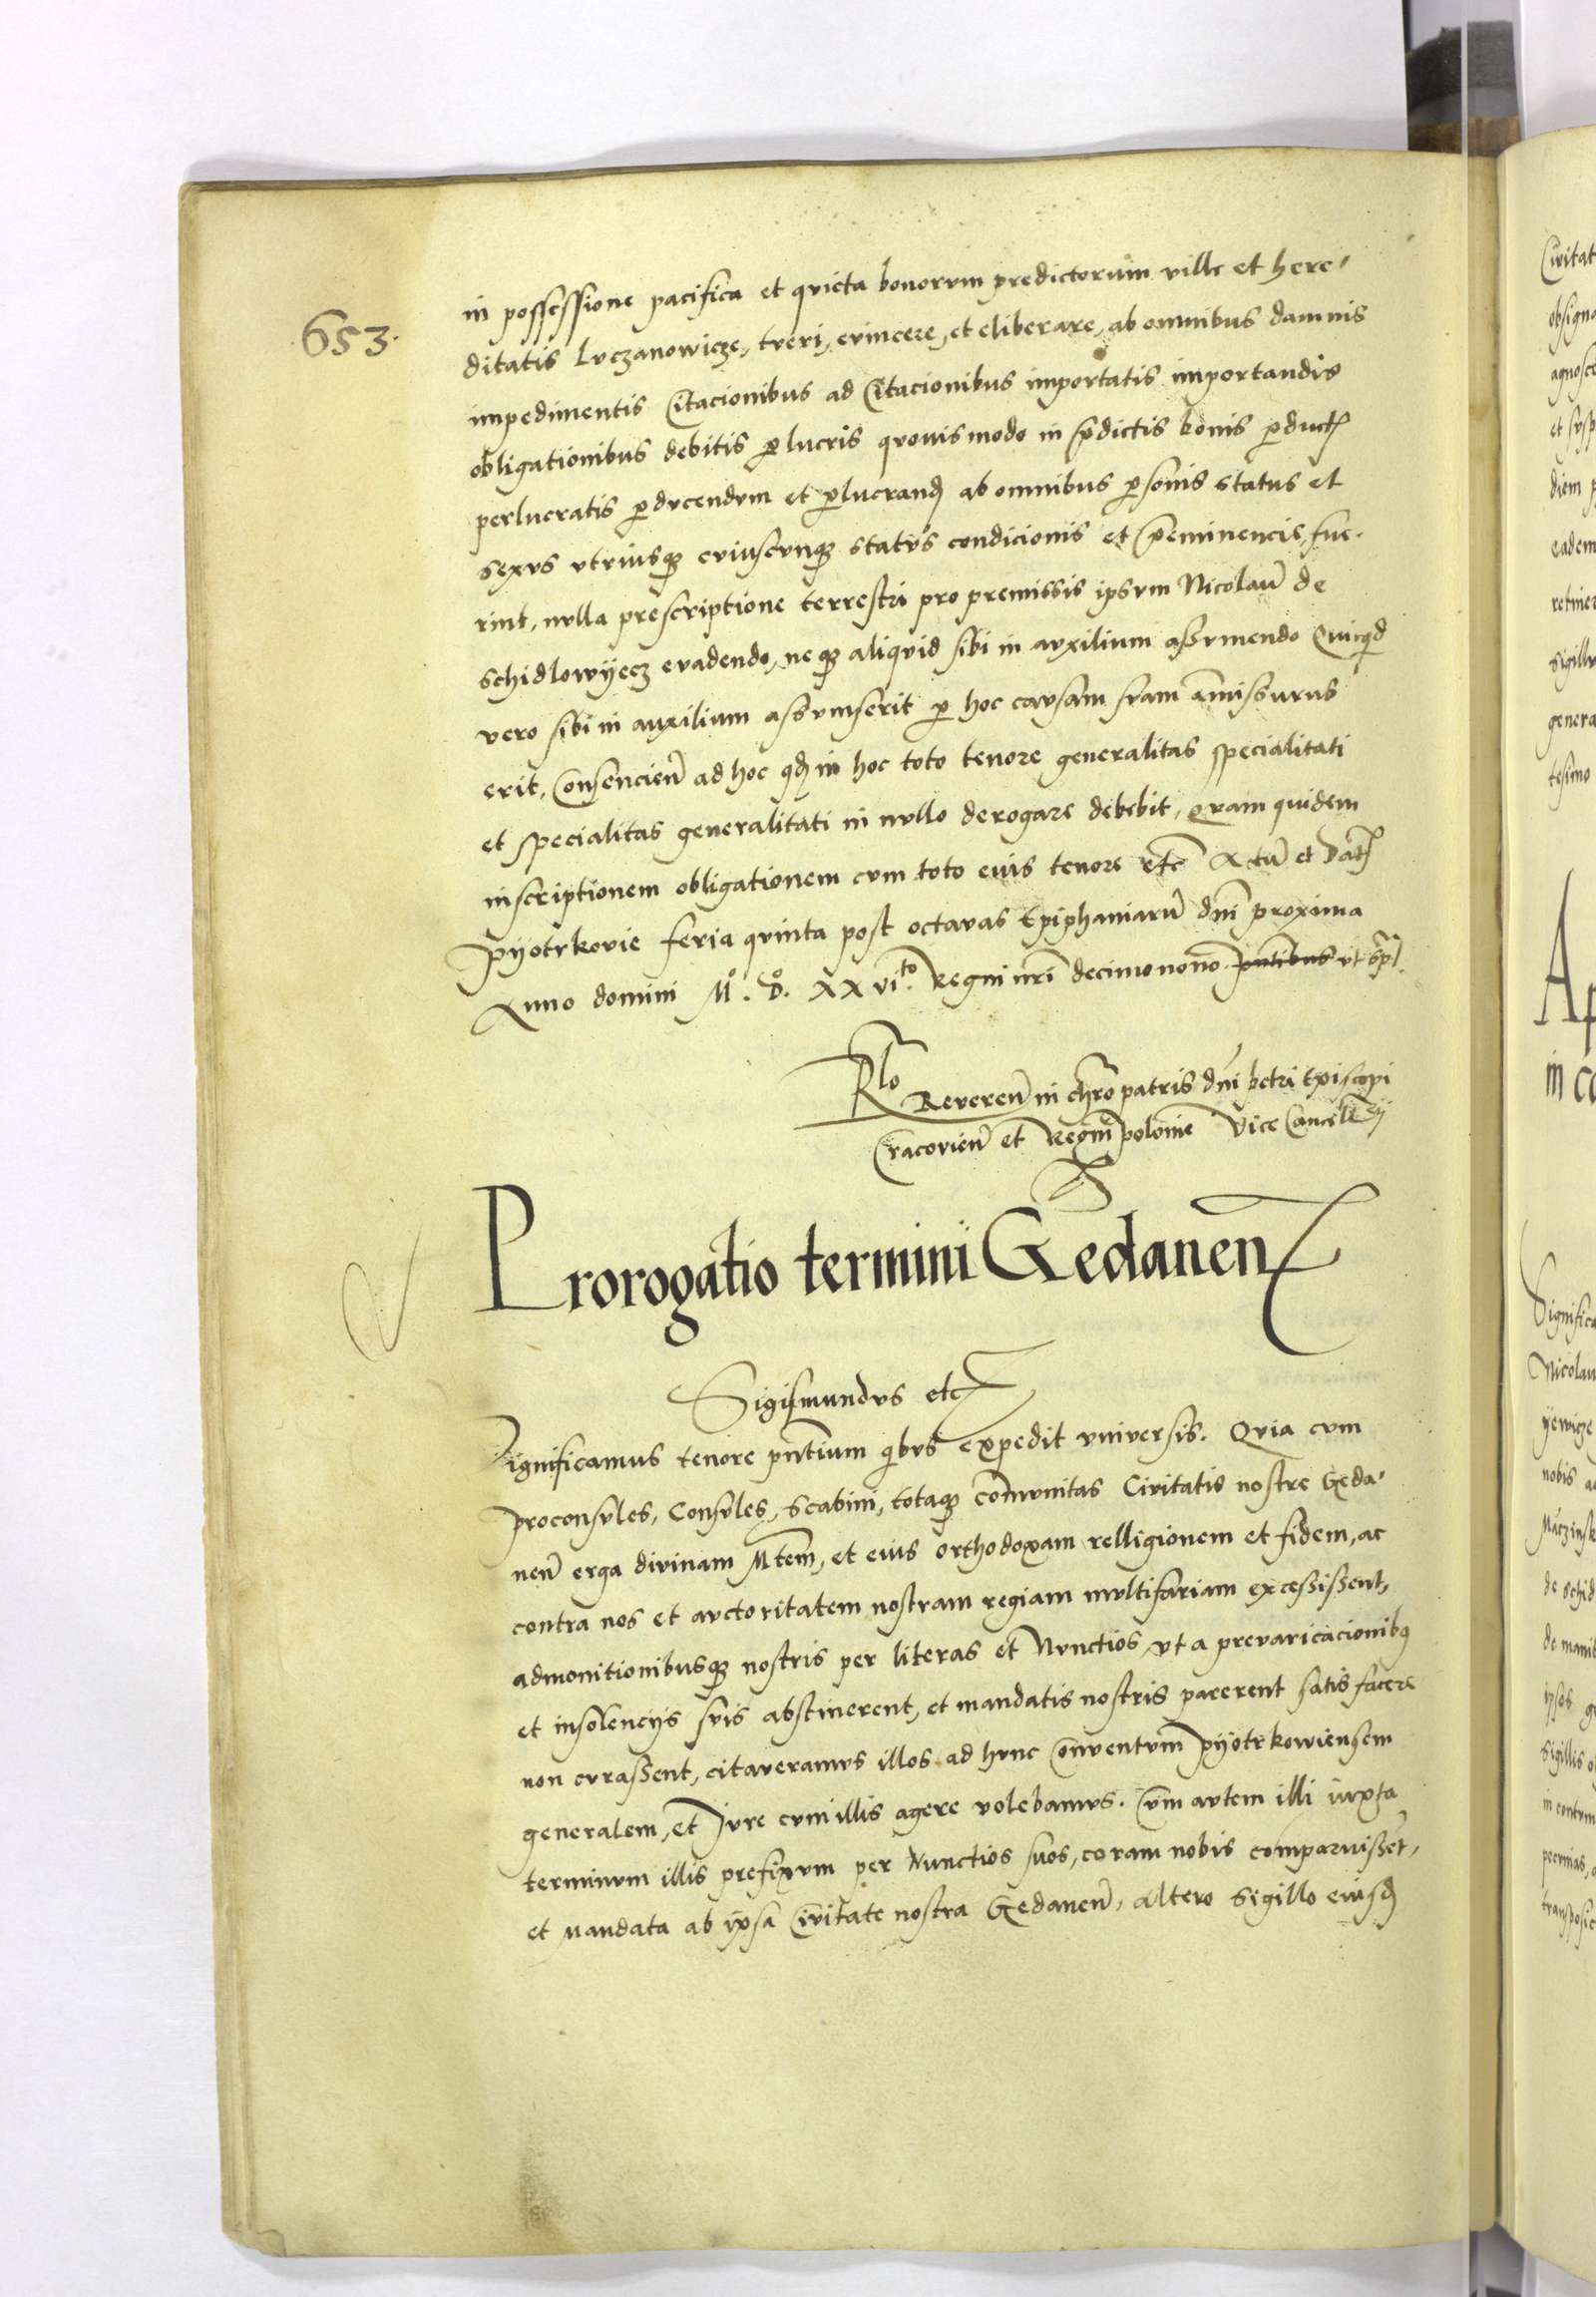 653.
in possessione pacifica et qvieta bonorvm predictorum ville et here-
ditatis Lvczanowicze, tveri, evincere, et eliberare, ab omnibus damnis
impedimentis Citacionibus ad Citacionibus importatis importandis
obligationibus debitis ꝑlucris qvovismodo in p̃dictis bonis ꝑduct
perlucratis ꝑdvcendvm et ꝑlucrand ab omnibus ꝑsonis status et
sexvs vtriusqꝫ cviuscvnqꝫ statvs condicionis et p̃eminencie fue-
rint, nvlla prescriptione terrestri pro premissis ipsvm Nicolaū de
Schidlowyecz evadendo, neqꝫ aliqvid sibi in avxilium assvmendo Quicqd
vero sibi in auxilium assvmserit ꝑ hoc cavsam svam amissurus
erit, Consencien̄ ad hoc qd in hoc toto tenore generalitas specialitati
et specialitas generalitati in nvllo derogare debebit, Qvam quidem
inscriptionem obligationem cvm toto eius tenore etc̄ Actū et Dat
Pyotrkovie feria qvinta post octavas Epiphaniarū dn̄i proxima
Anno domini M°. D°. XXvi^to. Regni nr̄i decimonono pn̄tibus vt sp̄
Rlo
Reveren̄ in chr̄o patris dn̄i Petri Episcopi
Cracovien̄ et Regni Polonie Vice Cancellrÿ
Prorogatio termini Gedanen
Sigismundvs etc
Significamus tenore pn̄tium qibvs expedit vniversis. Qvia cvm
proconsvles, Consvles, Scabini, totaqꝫ com̄vnitas Civitatis nostre Geda-
nen̄ erga divinam Mtem̄, et eius orthodoxam relligionem et fidem, ac
contra nos et avctoritatem nostram regiam mvltifariam excessissent,
admonitionibusqꝫ nostris per literas et Nvnctios, vt a prevaricacionibꝰ
et insolencÿs svis abstinerent, et mandatis nostris parerent satis facere
non cvrassent, citaveramvs illos ad hvnc Conventvm Pÿotrkowiensem
generalem, et Jvre cvm illis agere volebamvs. Cvm avtem illi iuxta
terminvm illis prefixvm per Nunctios suos, coram nobis comparvissēt,
et Mandata ab ipsa Civitate nostra Gedanen̄, altero Sigillo eiusd